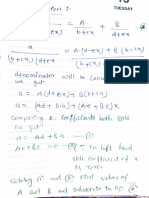 TUESDAY
= A/(b+cx) + B/(d+ex)
a/((b+cx)(d+ex)) = A·(d+ex)+B(b+cx)/((b+cx)
denominator will be
we get
a = A(d+ex)+B(b+cx)
a = (Ad+Bb)+(Ae+Bc)x
Comparing coefficients both
we get
Ad+B·b = a —
Ae+Bc = 0 — in left hand
side coefficient of x
is zero
Solving and find values of
A and B and substitute in